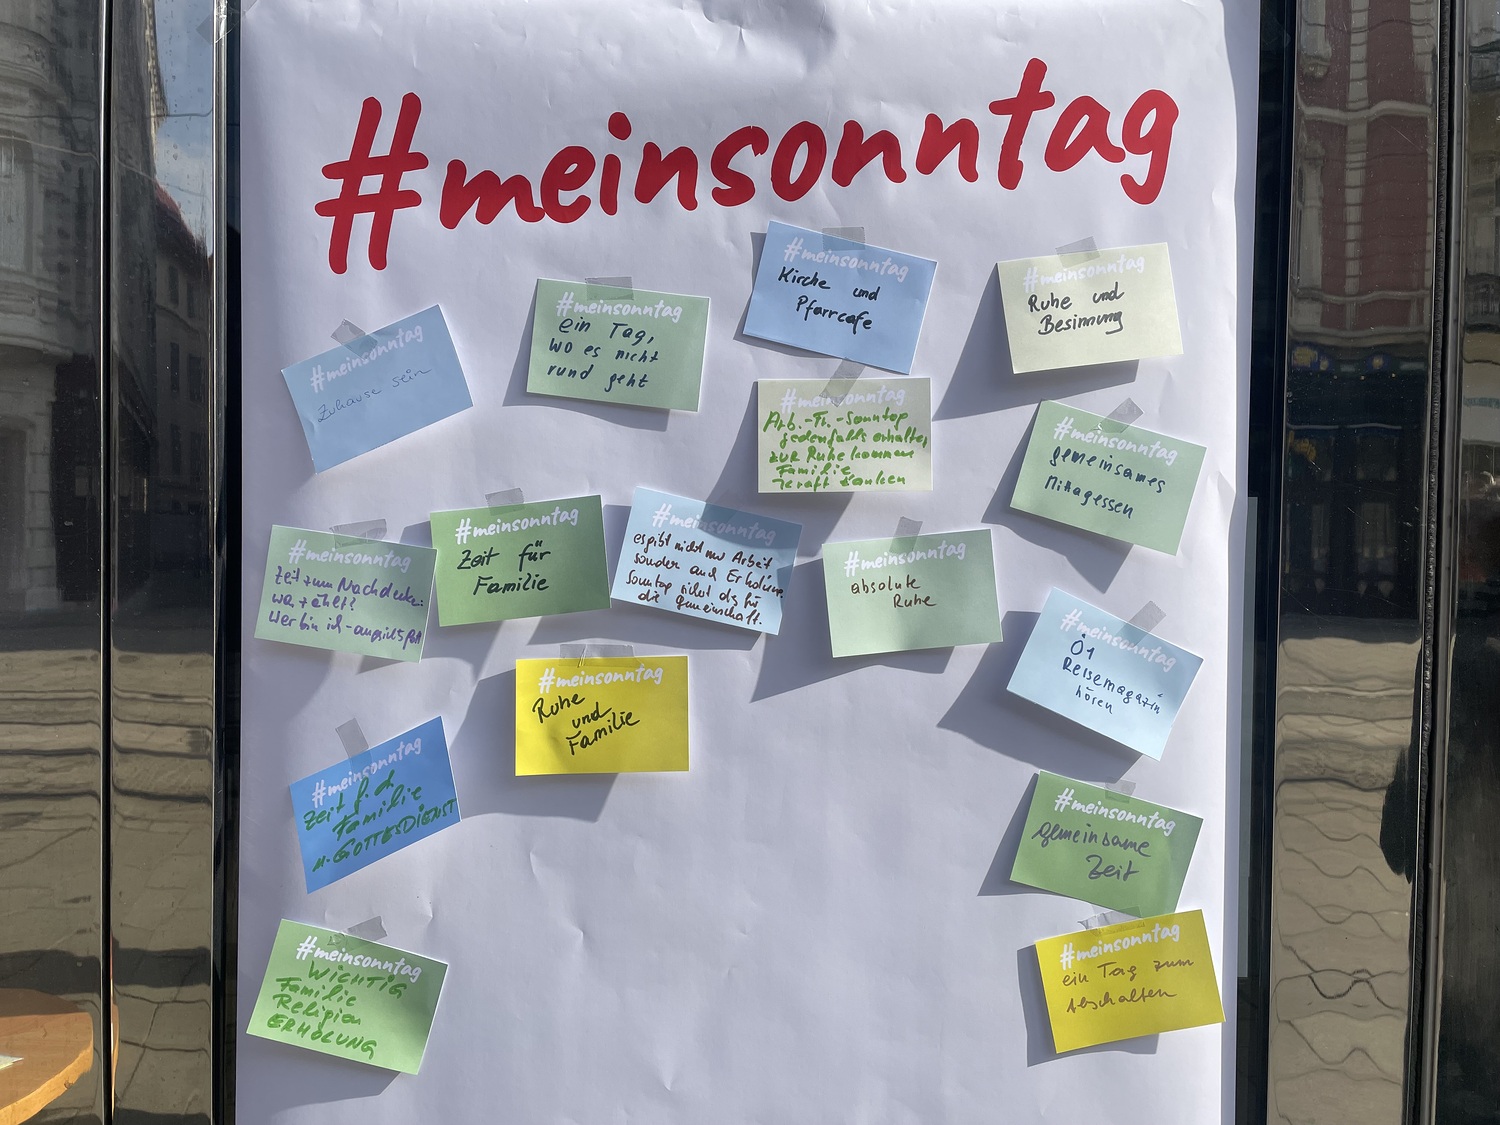 #meinsonntag
#meinsonntag
Kirche und
Pfarrcafe
#meinsonntag
Ruhe und
Besinnung
#meinsonntag
ein Tag,
wo es nicht
rund geht
#meinsonntag
Zuhause sein
#meinsonntag
Arb.-Fr.-Sonntag
jedenfalls erhalten
zur Ruhe kommen
Familie
Kraft tanken
#meinsonntag
gemeinsames
Mittagessen
#meinsonntag
Zeit zum Nachdenken:
was zählt?
Wer bin ich -
#meinsonntag
Zeit für
Familie
#meinsonntag
es gibt nicht nur Arbeit
sondern auch Erholung
Sonntag für
die Gemeinschaft.
#meinsonntag
absolute
Ruhe
#meinsonntag
Ö1
Reisemagazin
hören
#meinsonntag
Ruhe
und
Familie
#meinsonntag
Zeit f. d.
Familie
u. GOTTESDIENST
#meinsonntag
gemeinsame
Zeit
#meinsonntag
WICHTIG
Familie
Religion
ERHOLUNG
#meinsonntag
ein Tag zum
Abschalten